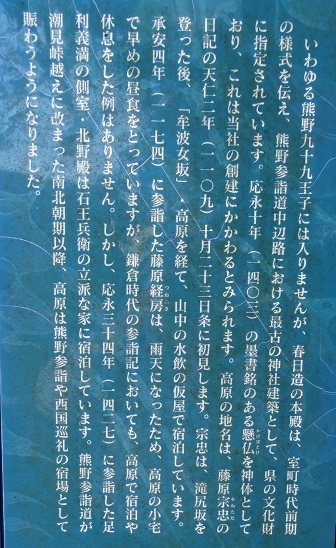 いわゆる熊野九十九王子には入りませんが、春日造の本殿は、室町時代前期
の様式を伝え、熊野参詣道中辺路における最古の神社建築として、県の文化財
に指定されています。応永十年（一四〇三）の墨書銘のある懸仏を神体として
おり、これは当社の創建にかかわるとみられます。高原の地名は、藤原宗忠の
日記の天仁二年（一一〇九）十月二十三日条に初見します。宗忠は、滝尻坂を
登った後、「牟波女坂」、高原を経て、山中の水飲の仮屋で宿泊しています。
承安四年（一一七四）に参詣した藤原経房は、雨天になったため、高原の小宅
で早めの昼食をとっていますが、鎌倉時代の参詣記においても、高原で宿泊や
休息をした例はありません。しかし、応永三十四年（一四二七）に参詣した足
利義満の側室・北野殿は石王兵衛の立派な家に宿泊しています。熊野参詣道が
潮見峠越えに改まった南北朝期以降、高原は熊野参詣や西国巡礼の宿場として
賑わうようになりました。